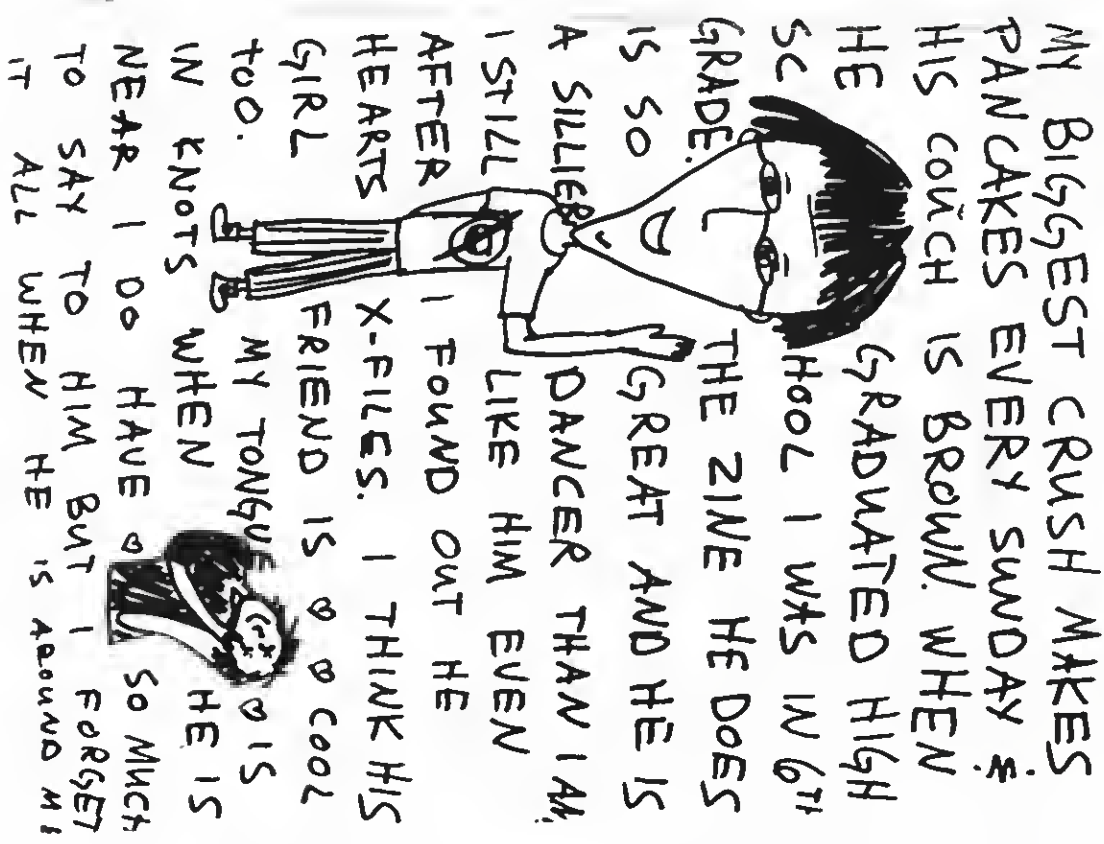 MY BIGGEST CRUSH MAKES
PANCAKES EVERY SUNDAY &
HIS COUCH IS BROWN. WHEN
HE GRADUATED HIGH
SCHOOL I WAS IN 6TH
GRADE. THE ZINE HE DOES
IS SO GREAT AND HE IS
A SILLIER DANCER THAN I AM.
I STILL LIKE HIM EVEN
AFTER I FOUND OUT HE
HEARTS X-FILES. I THINK HIS
GIRL FRIEND IS COOL
TOO. MY TONGUE IS
IN KNOTS WHEN HE IS
NEAR I DO HAVE SO MUCH
TO SAY TO HIM BUT I FORGET
IT ALL WHEN HE IS AROUND ME